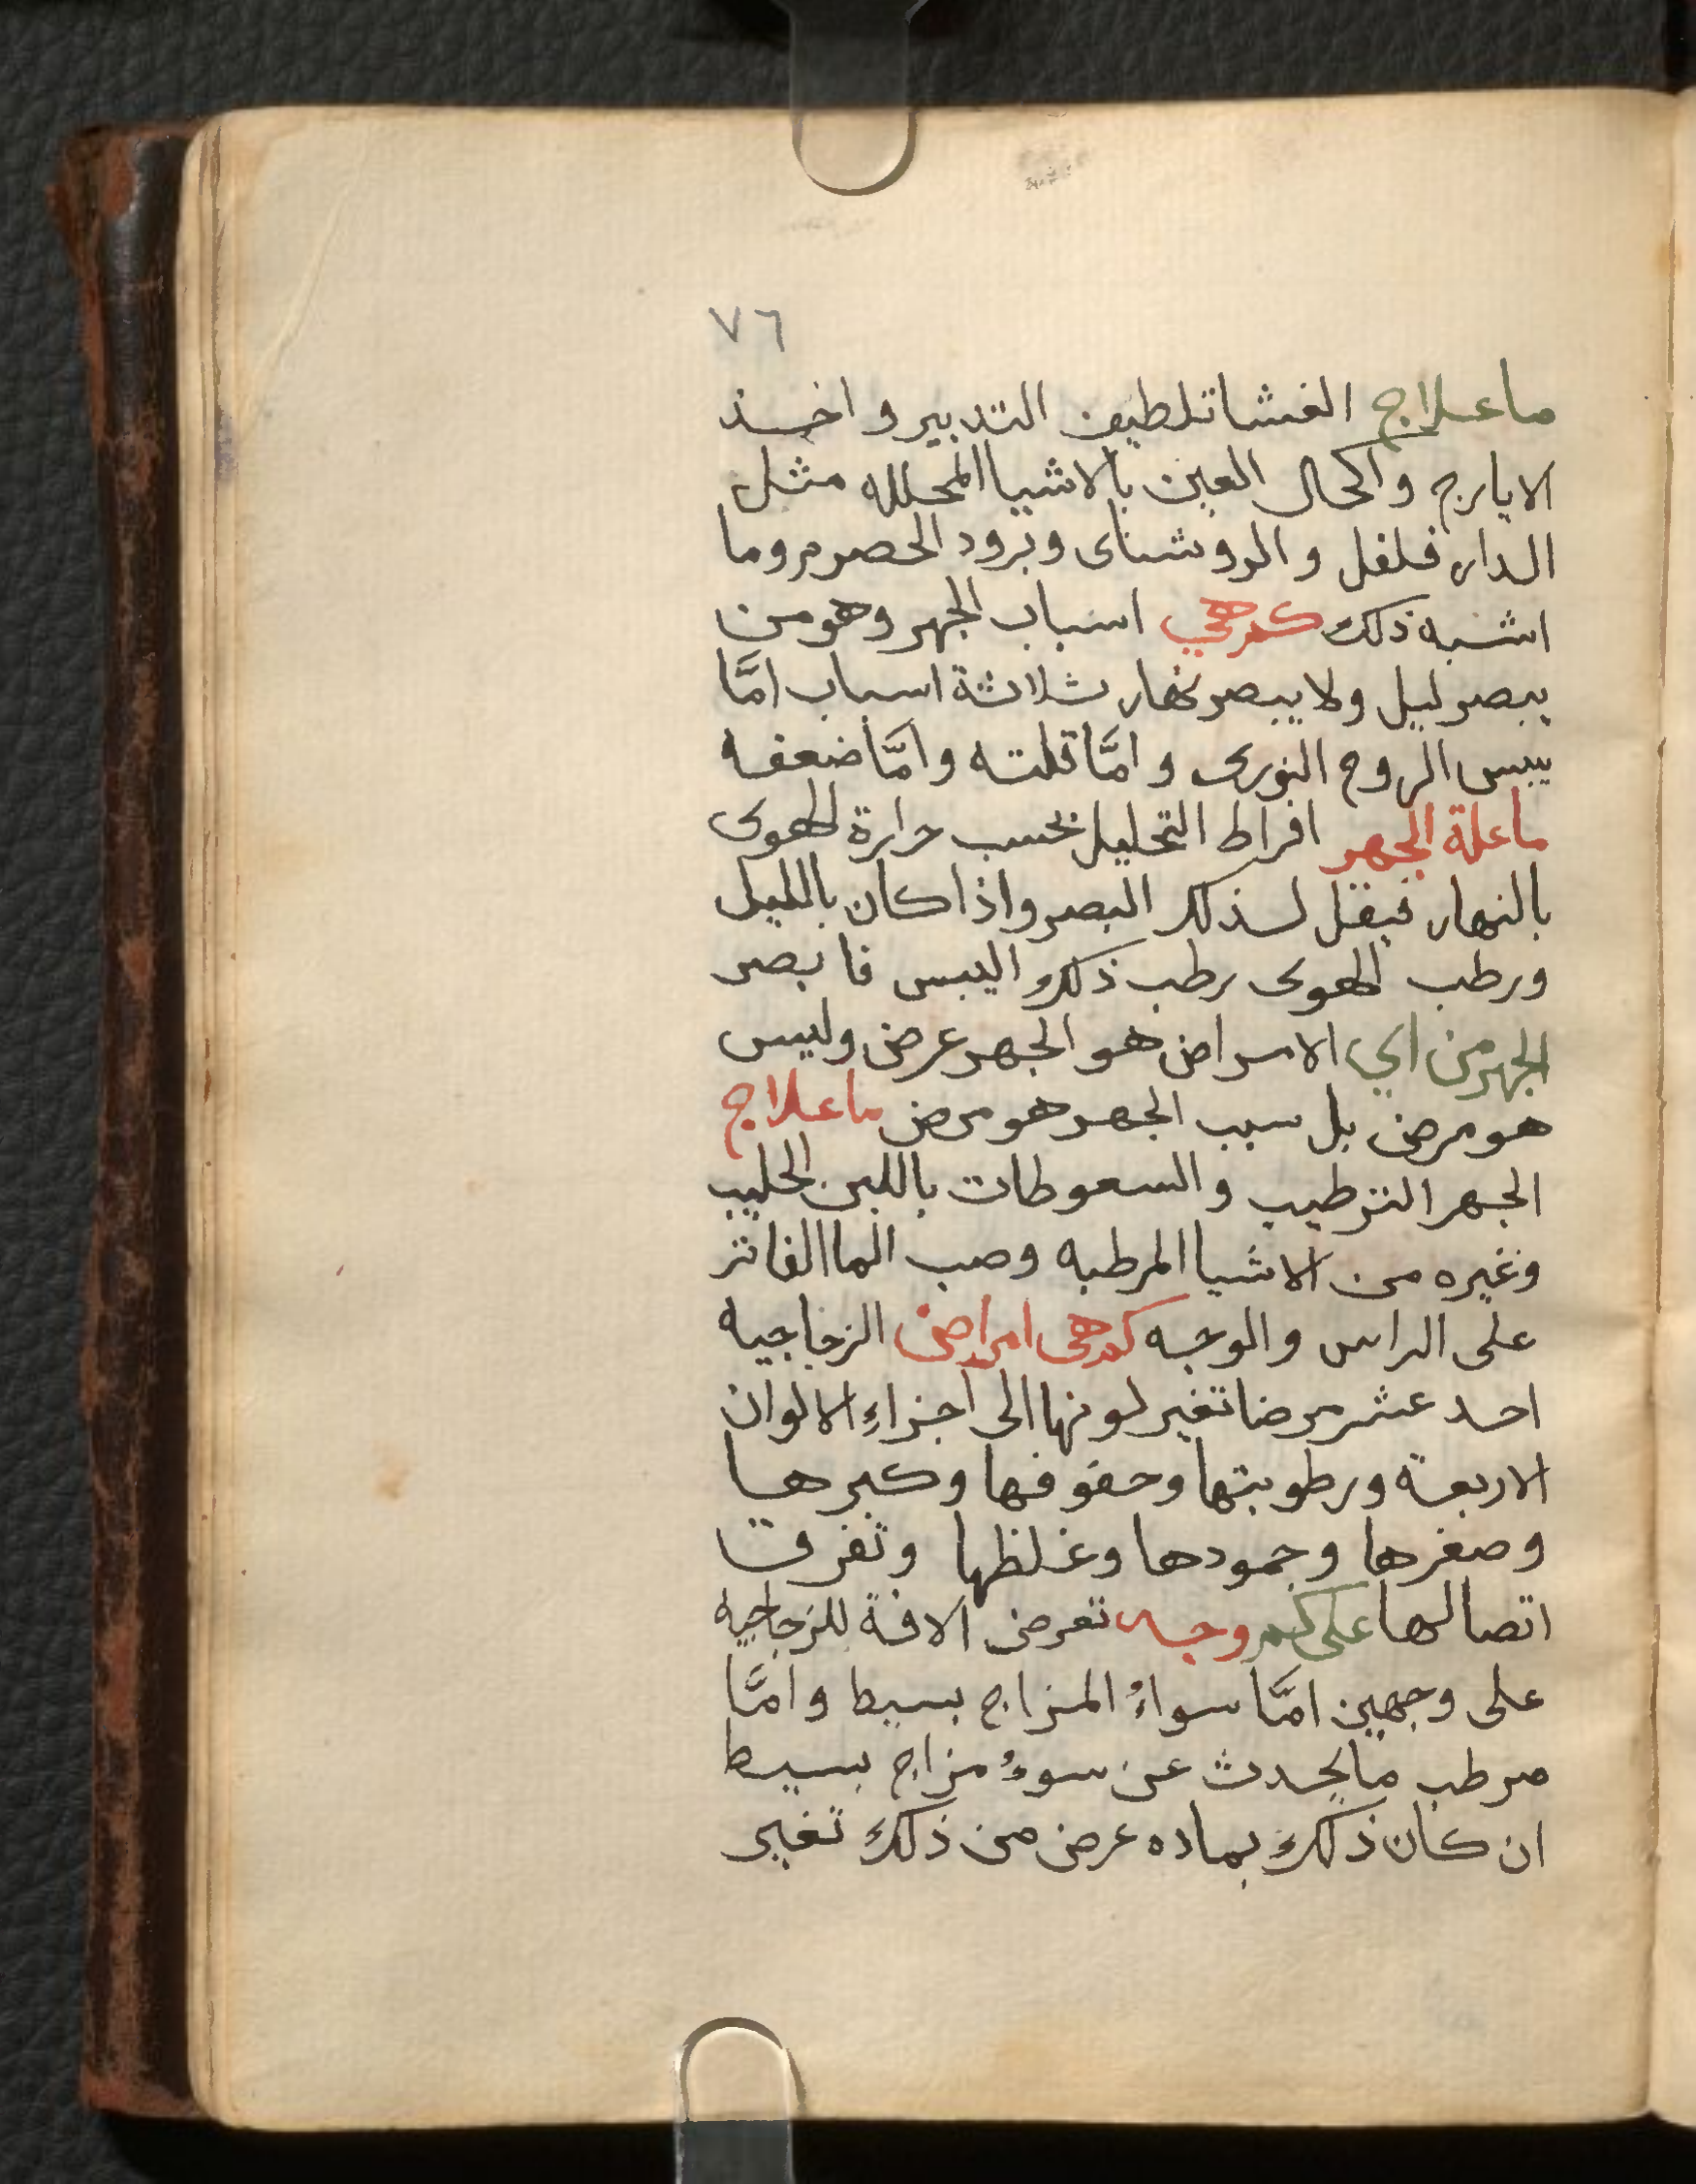 ٧٦
ما علاج الغشا تلطيف التدبير و اخذ
الايارج و اكحال العين بالاشيا المحلله مثل
الدار فلفل و الروشناى و برود الحصرم وما
اشبه ذلك كم هي اسباب الجهر وهو من
يبصر ليل ولا يبصر نهار ثلاثة اسباب امَّا
يبس الروح النورى و امَّا قلته و امَّا ضعفه
ما علة الجهر افراط التحليل بحسب حرارة الهوى
بالنهار فيقل لذلك البصر واذا كان بالليل
ورطب الهوى رطب ذلك اليبس فابصر
الجهر من اي الامراض هو الجهر عرض وليس
هو مرض بل سبب الجهر هو مرض ما علاج
الجهر الترطيب و السعوطات باللبن الحليب
وغيره من الاشيا المرطبه وصب الما الفاتر
على الراس و الوجه كم هى امراض الزجاجيه
احد عشر مرضا تغير لونها الى اجزاءِ الالوان
الاربعة ورطوبتها وحفوفها وكبرها
وصغرها وجمودها وغلظها وتفرق
اتصالها على كم وجه تعرض الافة للزجاجيه
على وجهين امَّا سواءُ المزاج بسيط و امَّا
مرطب ما يحدث عن سوءُ مزاج بسيط
ان كان ذلك بماده عرض من ذلك تغير